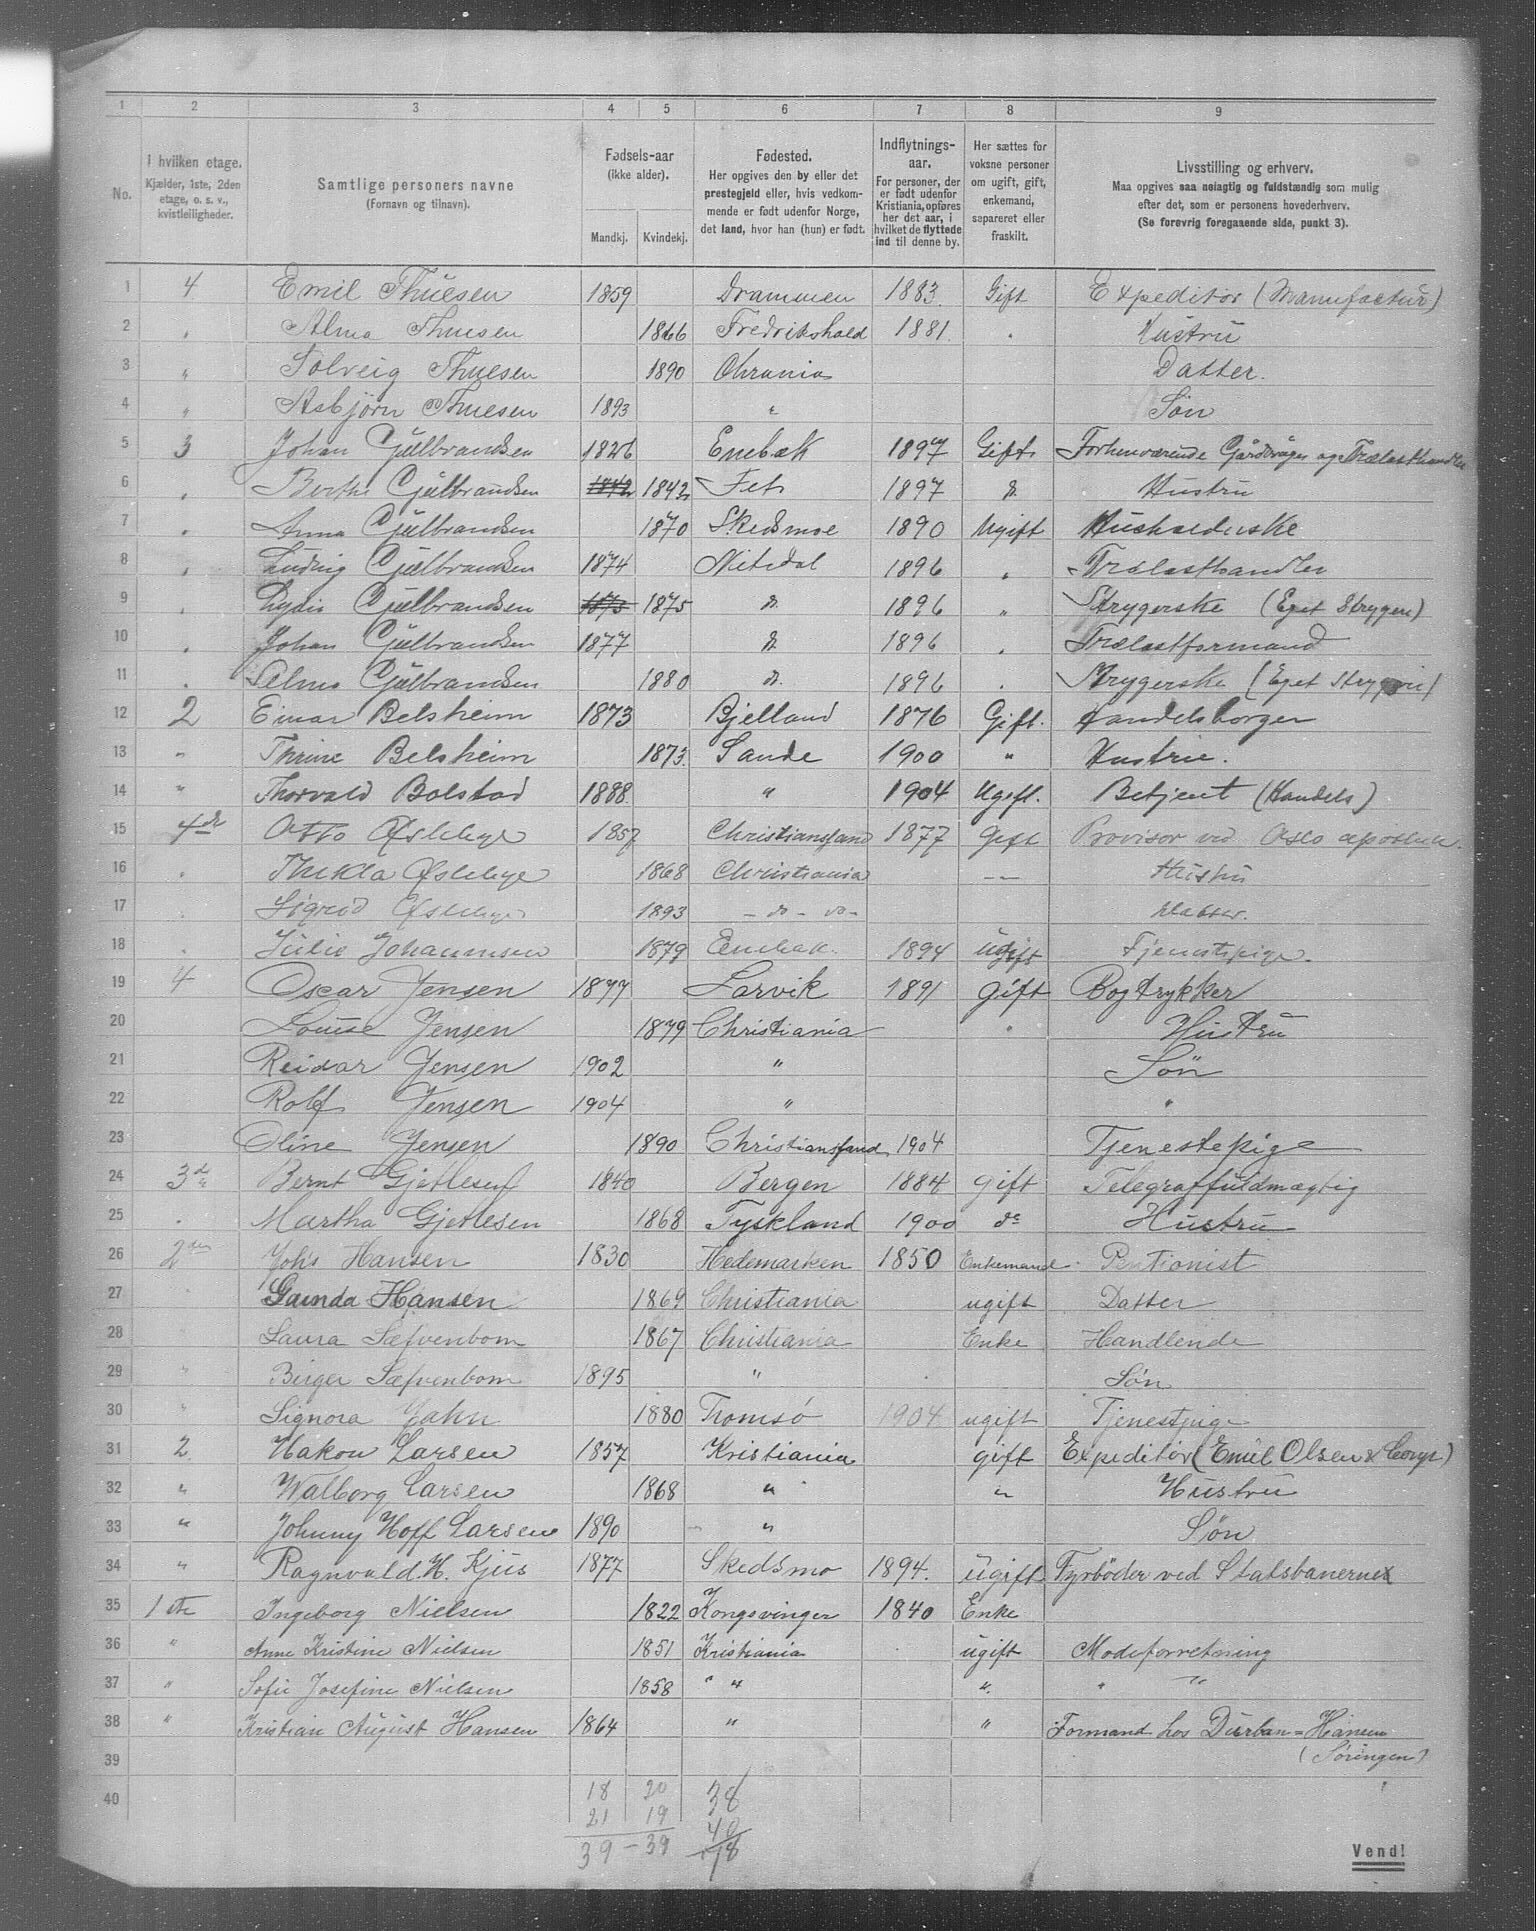 1 2 3 4 5 6 7 8 9
No. | I hvilken etage. Kjælder, 1ste, 2den etage, o. s. v., kvistleiligheder. | Samtlige personers navne (Fornavn og tilnavn). | Fødsels-aar (ikke alder). Mandkj. Kvindekj. | Fødested. Her opgives den by eller det prestegjeld eller, hvis vedkommende er født udenfor Norge, det land, hvor han (hun) er født. | Indflytnings-aar. For personer, der er født udenfor Kristiania, opføres her det aar, i hvilket de flyttede ind til denne by. | Her sættes for voksne personer om ugift, gift, enkemand, separeret eller fraskilt. | Livsstilling og erhverv. Maa opgives saa nøiagtig og fuldstændig som mulig efter det, som er personens hovederhverv. (Se forøvrig foregaaende side, punkt 3).
1 4 Emil Thuesen 1859 Drammen 1883 Gift Expeditør (Manufactur)
2 " Alma Thuesen 1866 Fredrikshald 1881 " Hustru
3 " Solveig Thuesen 1890 Chrania Datter.
4 " Asbjørn Thuesen 1893 " Søn
5 3 Johan Gulbrandsen 1826 Enebak 1897 Gift Forhenværende Gårdbruger og Trælasthandler
6 " Berthe Gulbrandsen 1842 1842 Fet 1897 do Hustru
7 " Anna Gulbrandsen 1870 Skedsmoe 1890 Ugift Husholderske
8 " Ludvig Gulbrandsen 1874 Nitedal 1896 " Trælasthandler
9 " Lydia Gulbrandsen 1875 1875 do 1896 " Strygerske (Eget Strygeri)
10 " Johan Gulbrandsen 1877 do 1896 " Trælastformand
11 " Alma Gulbrandsen 1880 do. 1896 " Strygerske (Eget Strygeri)
12 2 Einar Belsheim 1873 Bjelland 1876 Gift. Handelsborger
13 " Thrine Belsheim 1873. Sande 1900 " Hustrue.
14 " Thorvald Bolstad 1888 " 1904 Ugift. Betjent (Handels)
15 4de Otto Øslebye 1857 Christiansand 1877 Gift Provisor ved Oslo apothek.
16 " Thekla Øslebye 1868 Christiania — Hustru
17 " Sigrid Øslebye 1893 - do - do - Datter.
18 " Julie Johannesen 1879 Enebak. 1894 ugift Tjenestpige.
19 4 Oscar Jensen 1877 Larvik 1891 gift Bogtrykker
20 Louise Jensen 1879 Christiania " Hustru
21 Reidar Jensen 1902 " Søn
22 Rolf Jensen 1904 " "
23 Oline Jensen 1890 Christiansand 1904 Tjenestepige
24 3die Bernt Gjetlesen 1840 Bergen 1884 gift Telegraffuldmægtig
25 " Martha Gjetlesen 1868 Tyskland 1900 do Hustru
26 2den Johs Hansen 1830 Hedemarken 1850 Enkemand Pentionist
27 " Hansen 1869 Christiania ugift Datter
28 " Laura Sæfvenbom 1867 Christiania Enke Handlende
29 " Birger Sæfvenbom 1895 " Søn
30 " Signora Jahn 1880 Tromsø 1904 ugift Tjenestpige
31 2 Hakon Larsen 1857 Kristiania gift Expeditør (Emil Olsen & Comp)
32 " Walborg Larsen 1868 " " Hustru
33 " Johnny Hoff Larsen 1890 " Søn
34 " Ragnvald H. Kjus 1877 Skedsmo 1894. ugift Fyrbøder ved Statsbanerne
35 1ste Ingeborg Nielsen 1822 Kongsvinger 1840 Enke
36 " Anne Kristine Nielsen 1851 Kristiania ugift Modeforretning
37 " Sofie Josefine Nielsen 1858 " " " " "
38 " Kristian August Hansen 1864 " " Formand hos Durban=Hansen
39 (Søringen)
40 18 20 38
21 19 40
39 - 39 78
Vend!